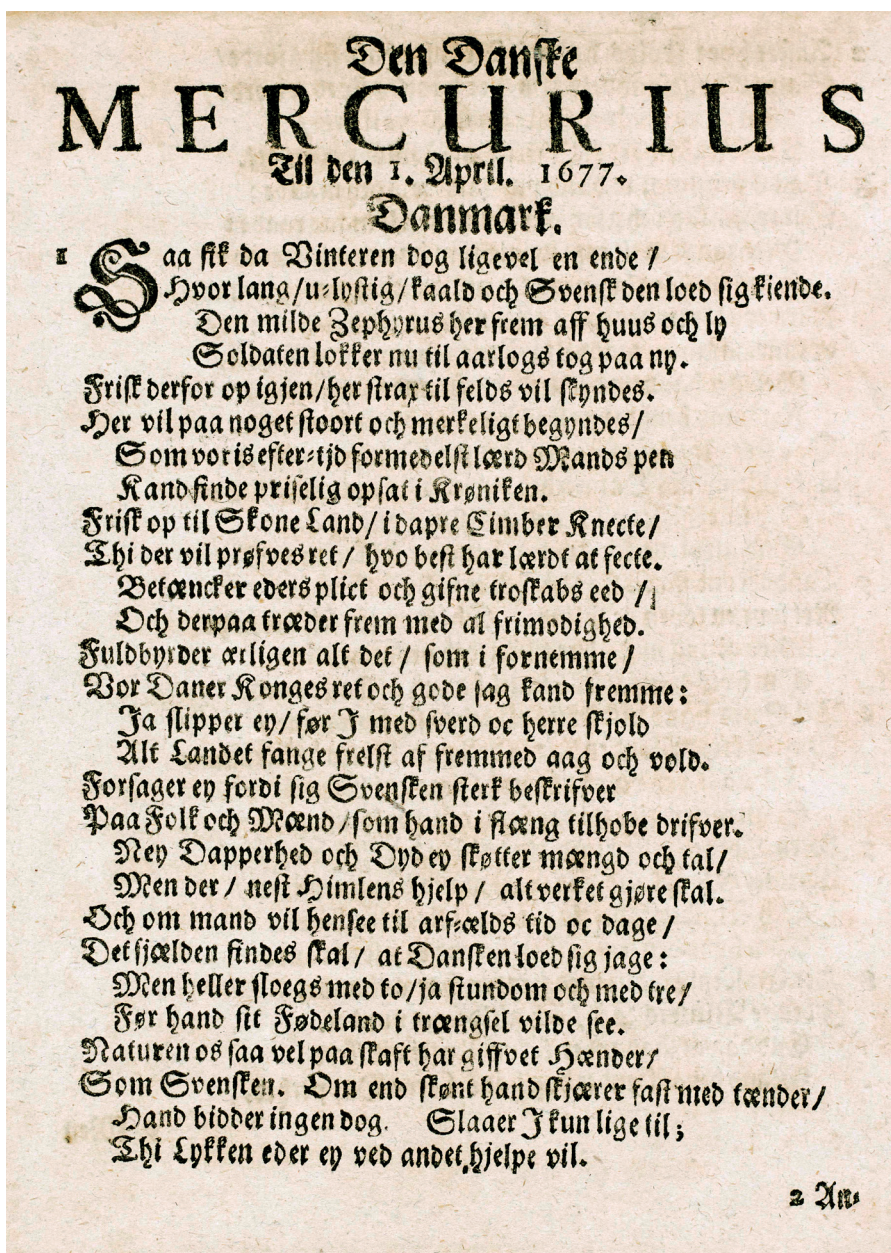 Den Danske
MERCURIUS
Til den 1. April. 1677.
Danmark.
1 Saa fik da Vinteren dog ligevel en ende /
Hvor lang/u-lystig/kaald och Svensk den loed sig kiende.
Den milde Zephyrus her frem aff huus och ly
Soldaten lokker nu til aarlogs tog paa ny.
Frisk derfor op igjen/her strax til felds vil skyndes.
Her vil paa noget stoort och merkeligt begyndes/
Som voris efter-tjd formedelst lærd Mands pen
Kand finde priselig opsat i Krøniken.
Frisk op til Skone Land/i dapre Cimber Knecte/
Thi der vil prøfves ret/ hvo best har lærdt at fecte.
Betæncker eders plict och gifne troskabs eed /
Och derpaa træder frem med al frimodighed.
Fuldbyrder ærligen alt det / som i fornemme /
Vor Daner Konges ret och gode sag kand fremme:
Ja slipper ey/før J med sverd oc herre skjold
Alt Landet fange frelst af fremmed aag och vold.
Forsager ey fordi sig Svensken sterk beskrifver
Paa Folk och Mænd/som hand i flæng tilhobe drifver.
Ney Dapperhed och Dyd ey skøtter mængd och tal/
Men der/ nest Himlens hjelp/ alt verket gjøre skal.
Och om mand vil hensee til arf-ælds tid oc dage /
Det sjælden findes skal/ at Dansken loed sig jage:
Men heller sloegs med to/ja stundom och med tre/
Før hand sit Fødeland i trængsel vilde see.
Naturen os saa vel paa skaft har giffvet Hænder/
Som Svensken. Om end skønt hand skjærer fast med tænder/
Hand bidder ingen dog. Slaaer J kun lige til;
Thi Lykken eder ey ved andet hjelpe vil.
2 An-